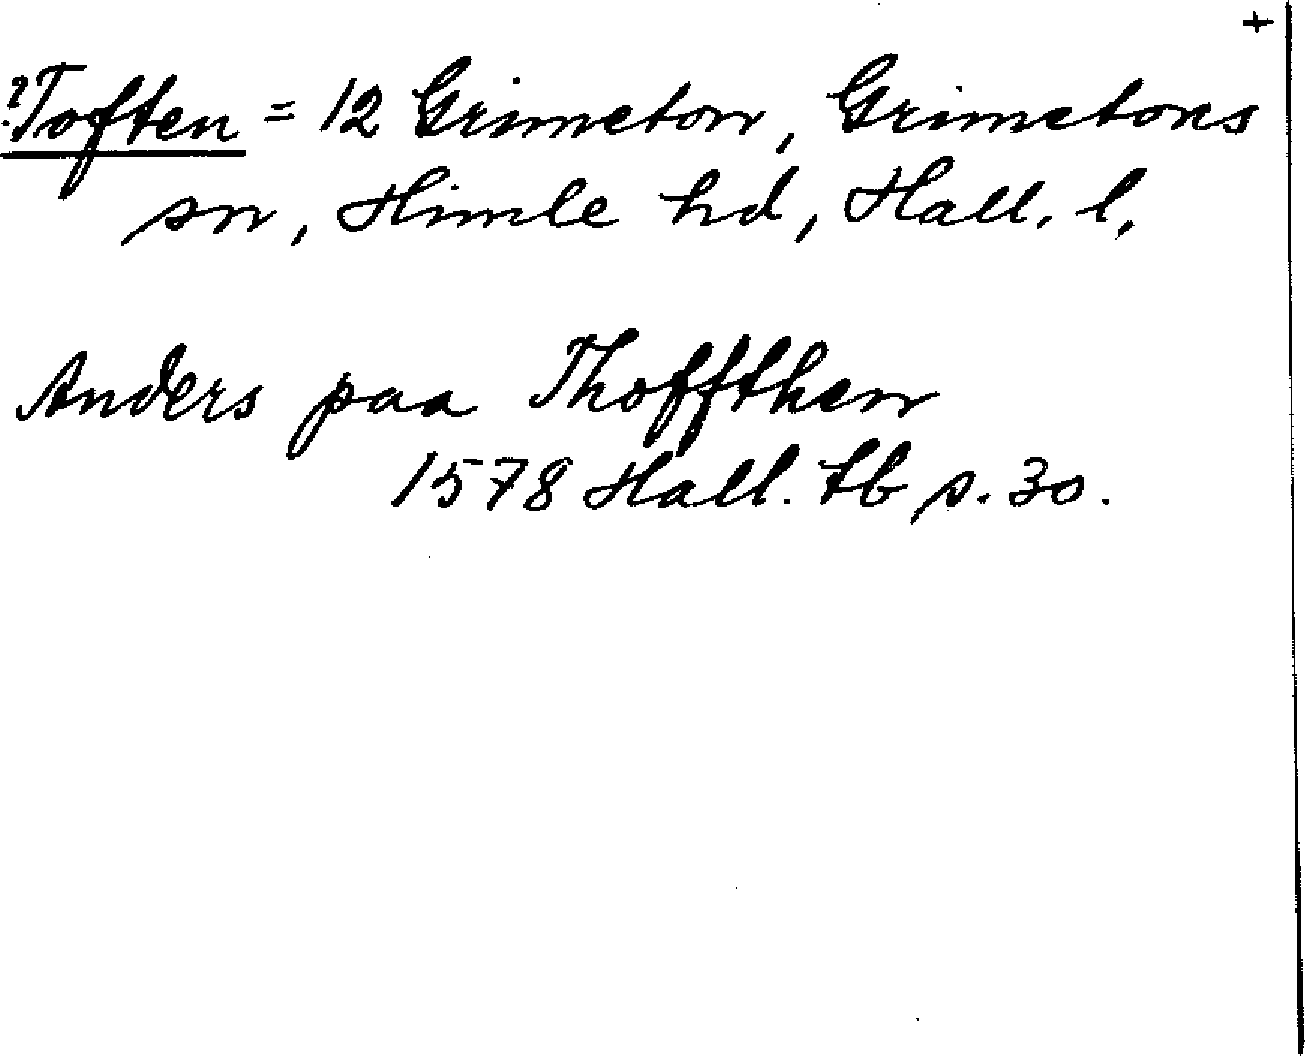 +
?Toften = 12 Grimeton, Grimetons
sn, Himle hd, Hall. l.
Anders paa Thoffthen
1578 Hall. tb s. 30.